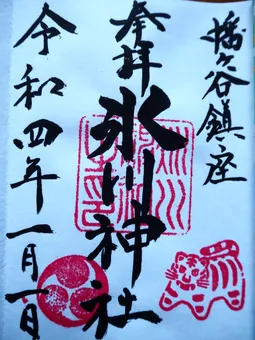 幡ヶ谷鎮座
奉拝
氷川神社
令和四年一月一日